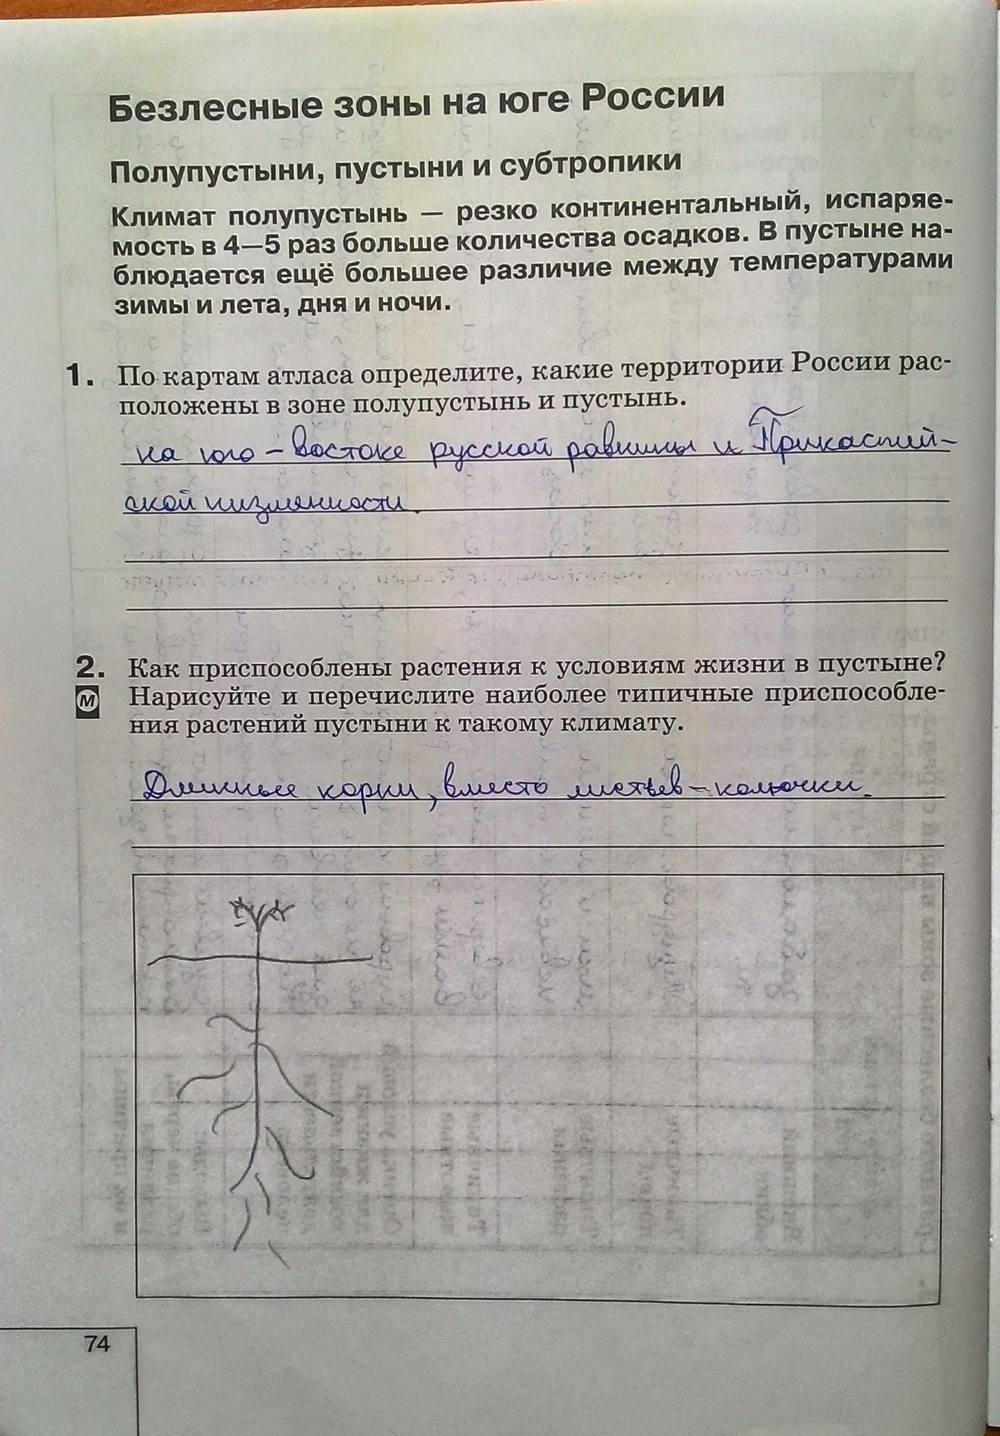 Безлесные зоны на юге России
Полупустыни, пустыни и субтропики
Климат полупустынь — резко континентальный, испаряе-
мость в 4—5 раз больше количества осадков. В пустыне на-
блюдается ещё большее различие между температурами
зимы и лета, дня и ночи.
1. По картам атласа определите, какие территории России рас-
положены в зоне полупустынь и пустынь.
на юго-востоке русской равнины и Прикаспий-
ской низменности.
2. Как приспособлены растения к условиям жизни в пустыне?
М Нарисуйте и перечислите наиболее типичные приспособле-
ния растений пустыни к такому климату.
Длинные корни, вместо листьев - колючки.
74